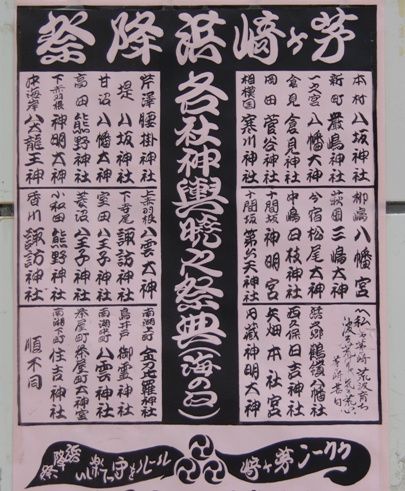 茅ヶ崎浜降祭
各社神輿暁之祭典(海の日)
本村 八坂神社
新町 厳島神社
一之宮 八幡大神
倉見 倉見神社
岡田 菅谷神社
相模国 寒川神社
柳島 八幡宮
萩園 三嶋大神
今宿 松尾大神
中島 日枝神社
十間坂 神明宮
十間坂 第六天神社
鶴嶺八幡社
西久保 日吉神社
矢畑 本社宮
円蔵 神明大神
芹澤 腰掛神社
堤 八坂神社
甘沼 八幡大神
高田 熊野神社
下赤羽根 神明大神
中海岸 八大龍王神
上赤羽根 八雲大神
下寺尾 諏訪神社
室田 八王子神社
菱沼 八王子神社
小和田 熊野神社
香川 諏訪神社
南湖上町 金刀比羅神社
鳥井戸 御霊神社
南湖中町 八雲神社
茶屋町 茶屋町大神宮
南湖下町 住吉神社
順不同
浜降祭
ルールを守って楽しい
茅ヶ崎